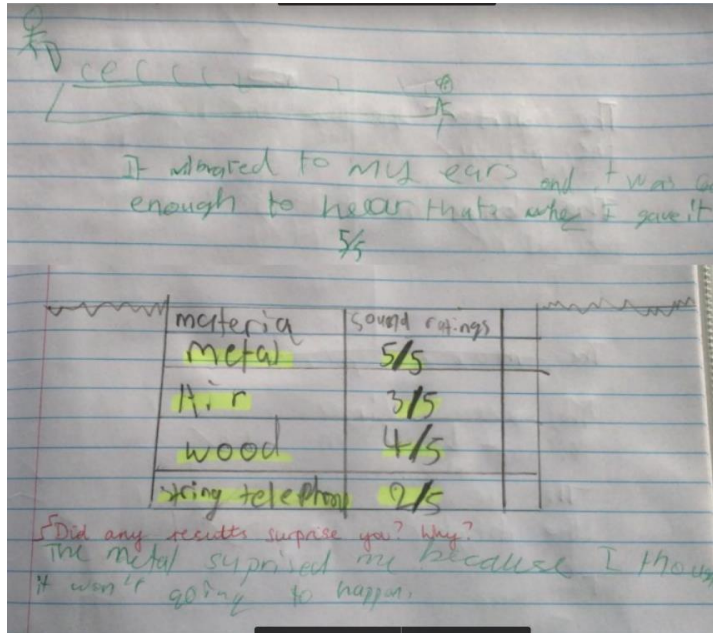 cecccc
It vibrated to my ears and it was
enough to hear thats why I gave it
5/5
materia sound ratings
metal 5/5
Air 3/5
wood 4/5
string telephon 2/5
Did any results surprise you? Why?
The metal suprised me because I thou
it wasn't going to happen.